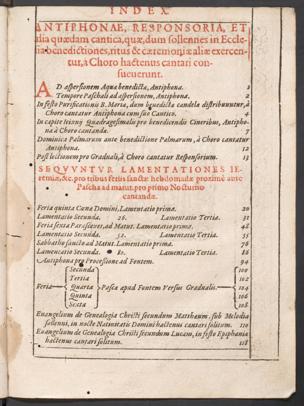 INDEX
ANTIPHONAE, RESPONSORIA, ET
alia quædam cantica, quæ, dum sollennes in Eccle-
sia benedictiones, ritus & cæremoniæ aliæ exercen-
tur, à Choro hactenus cantari con-
sueuerunt.
AD aspersionem Aquæ benedictæ, Antiphona.
Tempore Paschali ad aspersionem, Antiphona.
In festo Purificationis B. Mariæ, dum benedicta candela distribuuntur, à
Choro cantatur Antiphona cum suo Cantico. 4
In capite ieiunij Quadragesimalis pro benedicendis Cineribus, Antipho-
na à Choro cantanda. 7
Dominica Palmarum ante benedictione Palmarum, à Choro cantatur
Antiphona. 12
Post lectionem pro Graduali, à Choro cantatur Responsorium. 13
SEQVVNTVR LAMENTATIONES IE-
remiæ, &c. pro tribus ferijs sanctæ hebdomadæ proximè ante
Pascha ad matut. pro primo Nocturno
cantandæ.
Feria quinta Cœnæ Domini, Lamentatio prima. 20
Lamentatio Secunda. 26. Lamentatio Tertia. 31
Feria sexta Parasceues, ad Matut. Lamentatio prima. 48
Lamentatio Secunda. 52. Lamentatio Tertia. 55
Sabbatho sancto ad Matut. Lamentatio prima. 76
Lamentatio Secunda. 80. Lamentatio Tertia. 86
Antiphona pro Processione ad Fontem. 94
Secunda 100
Tertia 102
Feria Quarta Pasca apud Fontem Versus Gradualis. 104
Quinta 106
Sexta 108
Euangelium de Genealogia Christi secundum Matthæum, sub Melodia
sollenni, in nocte Natiuitatis Domini hactenus cantari solitum. 110
Euangelium de Genealogia Christi secundum Lucam, in festo Epiphaniæ
hactenus cantari solitum. 118